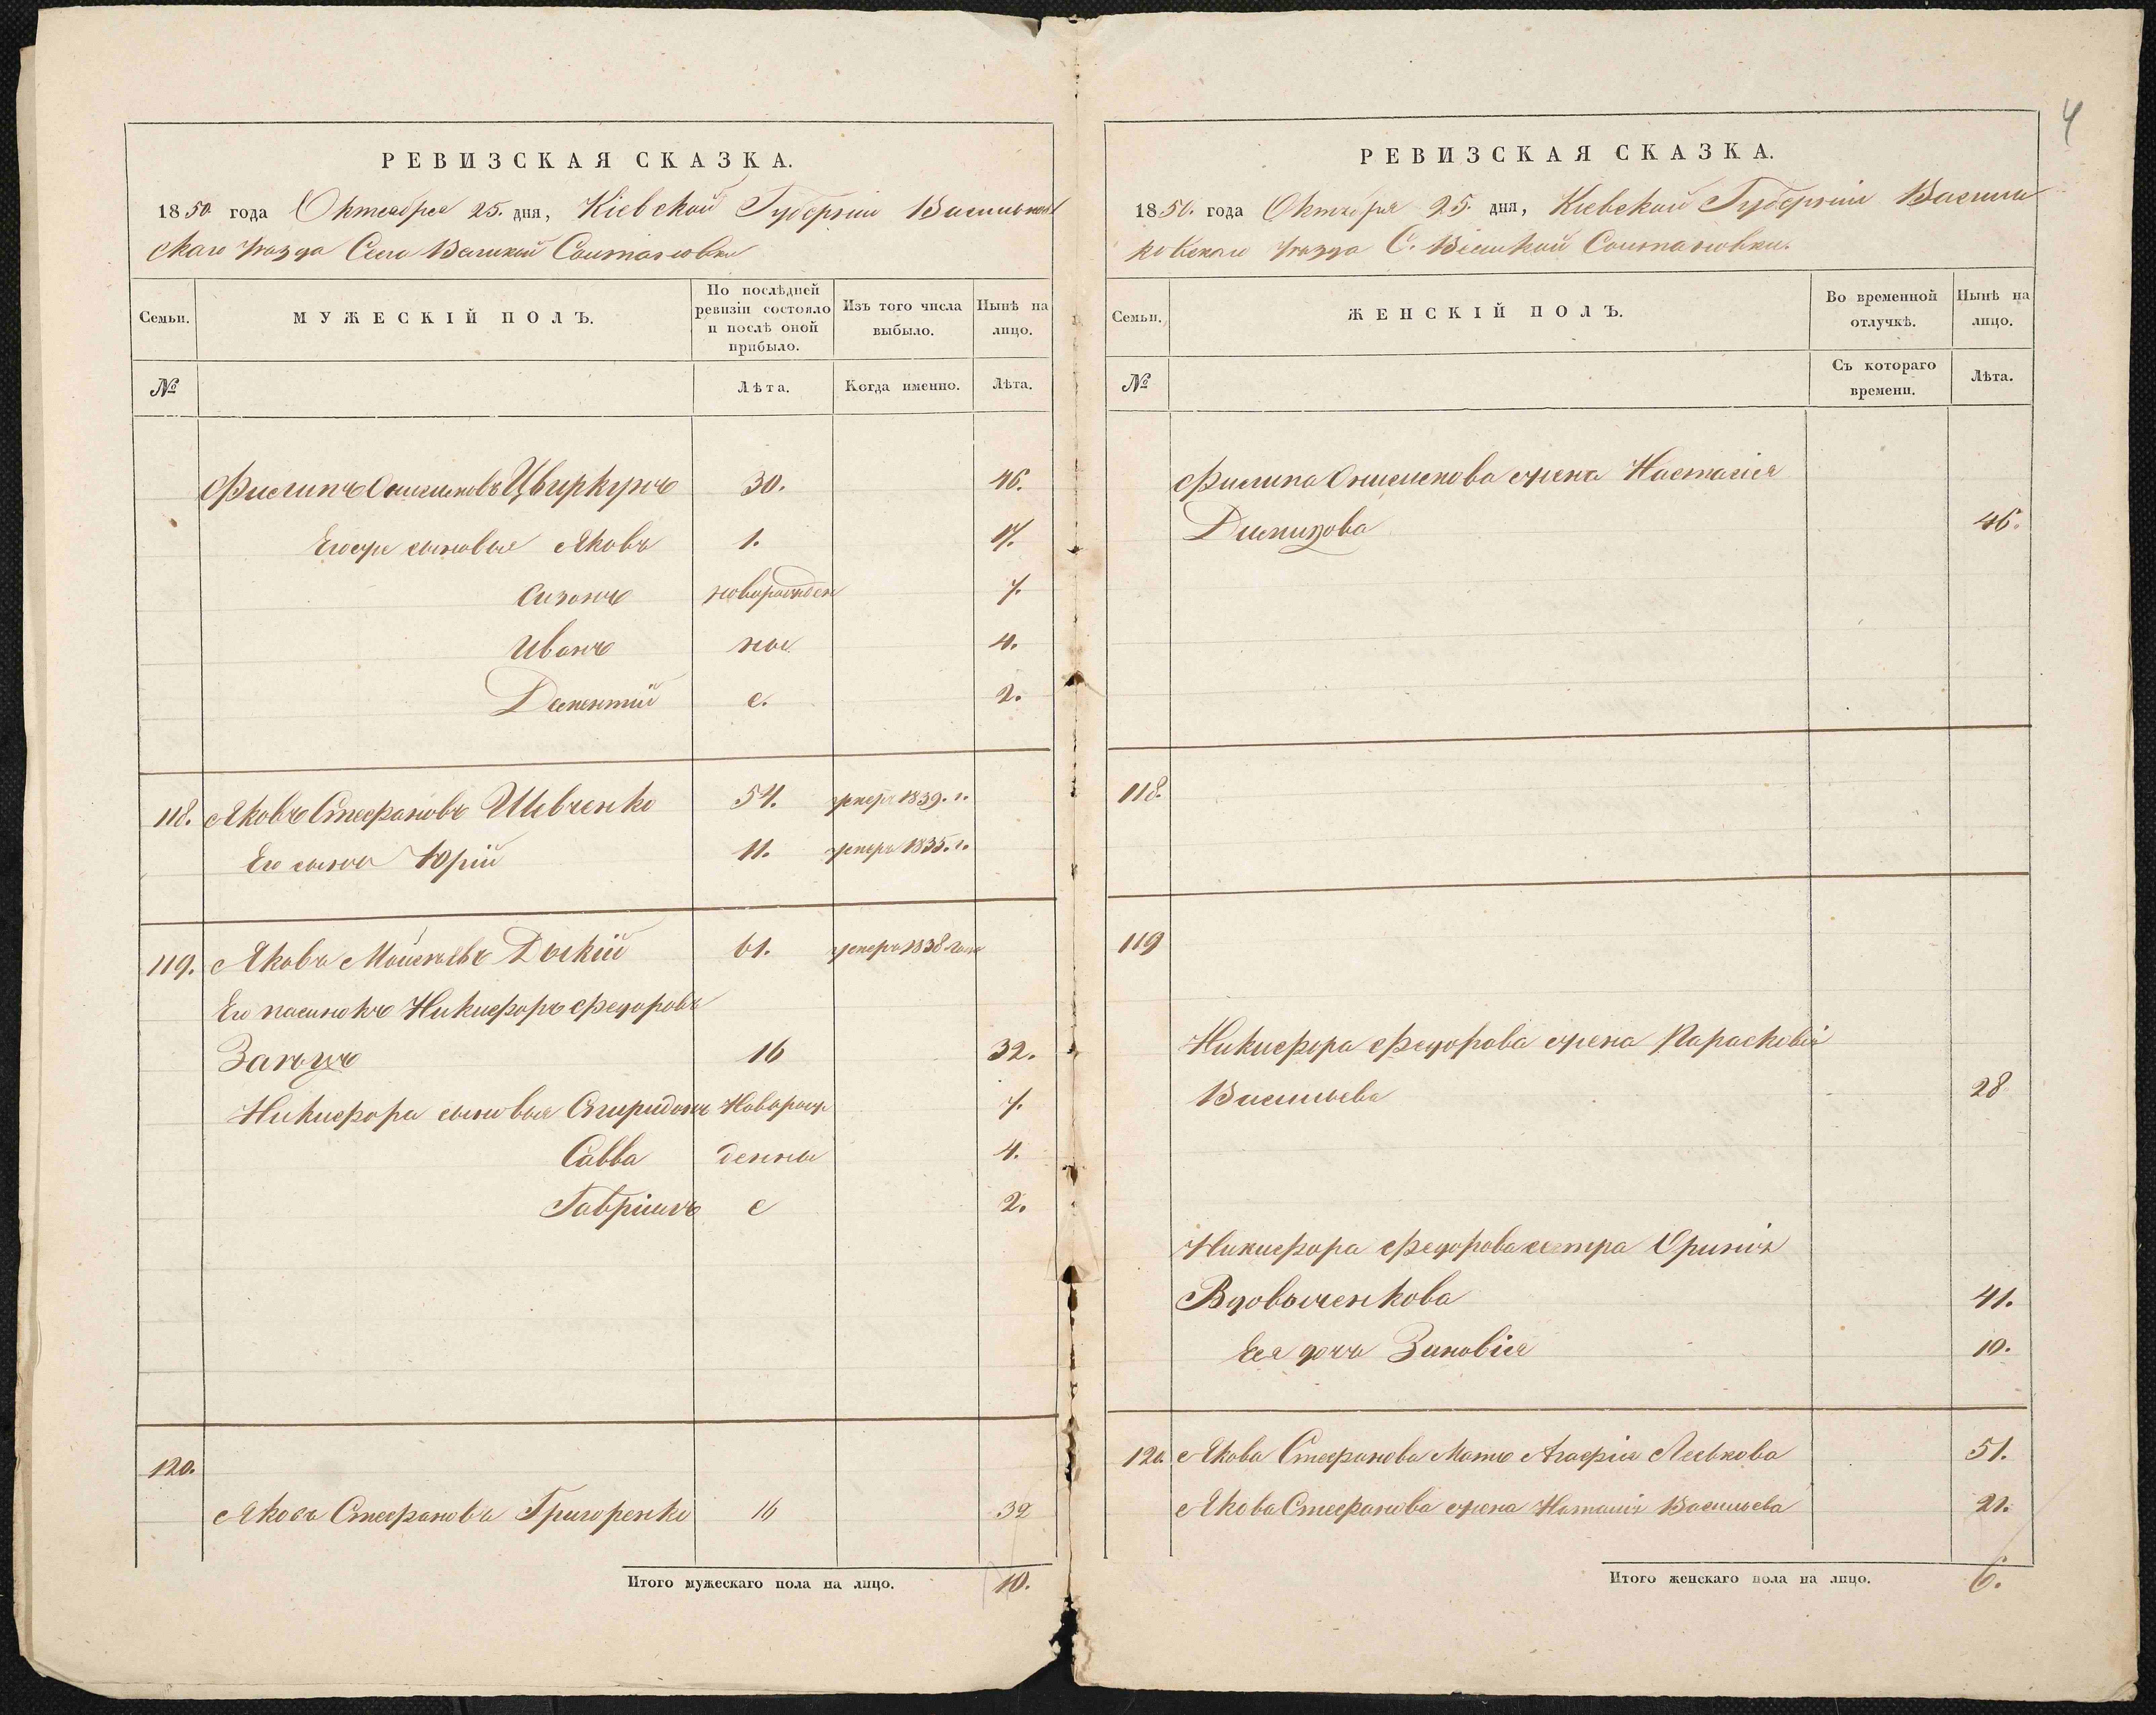 4
РЕВИЗСКАЯ СКАЗКА.
1850 года Октября 25. дня, Кіевской Губерніи Васильков
скаго уѣзда Села Великой Солтановки
Семьи. МУЖЕСКІЙ ПОЛЪ. По послѣдней ревизіи состояло и послѣ оной прибыло. Изъ того числа выбыло. Нынѣ на лицо.
№ Лѣта. Когда именно. Лѣта.
Филипъ Онисимовъ Цвиркунъ 30. 46.
Его же сыновья Яковъ 1. 17.
Созонъ новорожден 7.
Иванъ ные 4.
е. 2.
118. Яковъ Стефановъ Шевченко 54. умеръ 1839. г.
Его сынъ Юрій 11. умеръ 1835. г.
119. Яковъ Моисѣевъ Дыкій 61. умеръ 1838 года
Его пасинокъ Никифоръ Федоровъ
Заяцъ 16 32.
Никифора сыновья Спиридонъ Новорож 7.
Савва денны 4.
Гавріилъ е 2.
120.
Яковъ Стефановъ Григоренко 16 32
Итого мужескаго пола на лицо. 10.
РЕВИЗСКАЯ СКАЗКА.
1850. года Октября 25. дня, Кіевской Губерніи Василь
ковскаго уѣзда С. Великой Солтановки.
Семьи. ЖЕНСКІЙ ПОЛЪ. Во временной отлучкѣ. Нынѣ на лицо.
№ Съ котораго времени. Лѣта.
Филипа Онисимова жена Настасія
46.
118.
119
Никифора Федорова жена Парасковія
Васильева 28
Никифора Федорова сестра Ориния
Вдовыченкова 41.
Ея дочь Зиновія 10.
120. Якова Стефанова Мать Агафія Леськова 51.
Якова Стефанова жена Наталія Васильева 21.
Итого женскаго пола на лицо. 6.